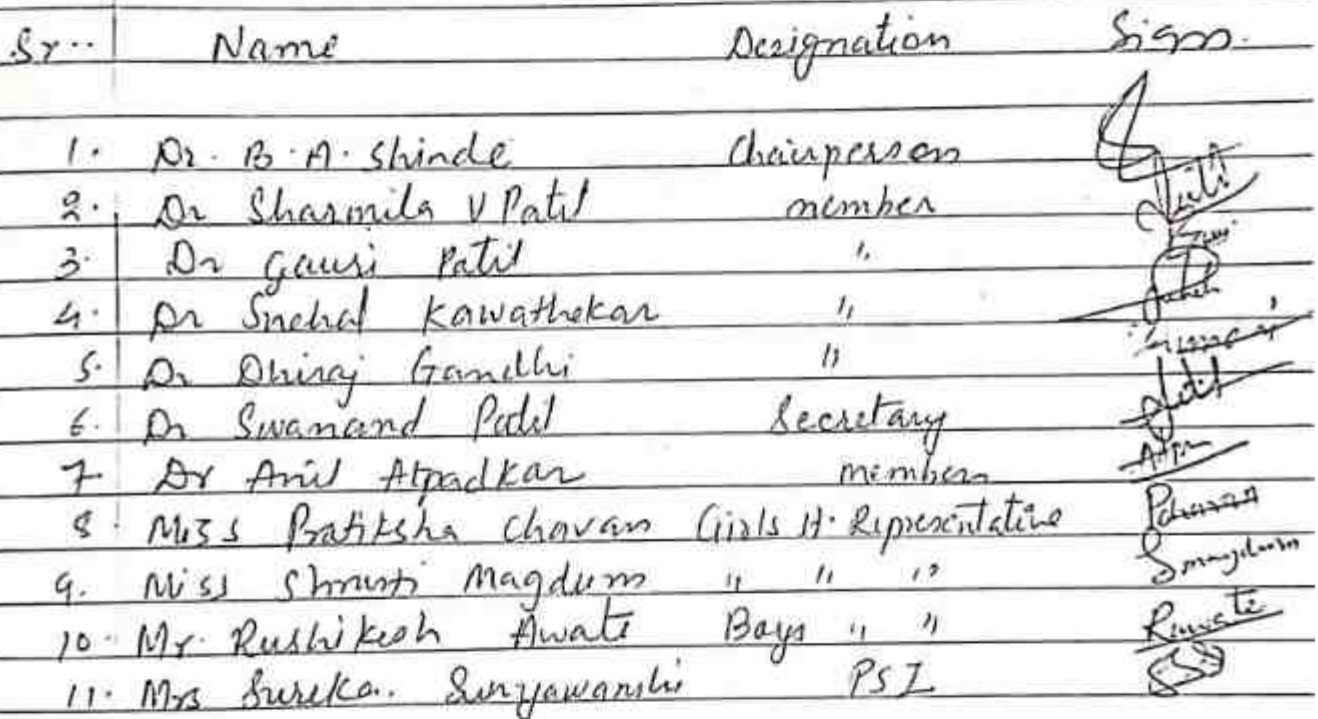 Sr.. Name Designation Sign.
1. Dr. B. A. Shinde Chairperson
2. Dr Sharmila V Patil member
3. Dr Gauri Patil "
4. Dr Snehal Kawathekar "
5. Dr Dhiraj Gandhi "
6. Dr Swanand Patil Secretary
7 Dr Anil Atpadkar member
8. Miss Pratiksha Chavan Girls H. Representative
9. Miss Shruti Magdum " " " Smagdum
10. Mr. Rushikesh Awate Boys " " Rawate
11. Mrs Sureka. Suryawanshi PSI